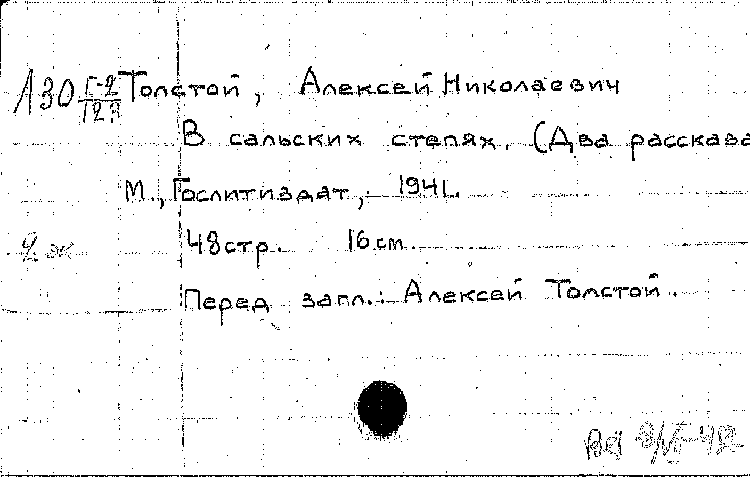 Л30 Г-2/12 Толстой, Алексей Николаевич
В сальских степях. (Два рассказа
М., Гослитиздат, 1941.
2 ж 48 стр. 16 см.
Перед загл.: Алексей Толстой.